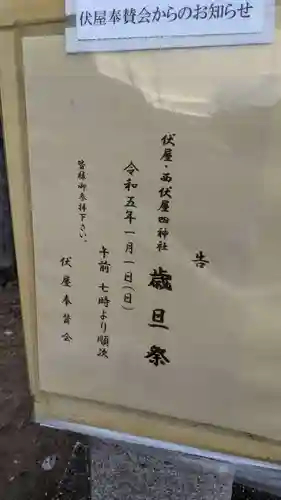 伏屋奉賛会からのお知らせ
告
伏屋・西伏屋四神社
歳旦祭
令和五年一月一日(日)
午前 七時より順次
皆様御参拝下さい。
伏屋奉賛会